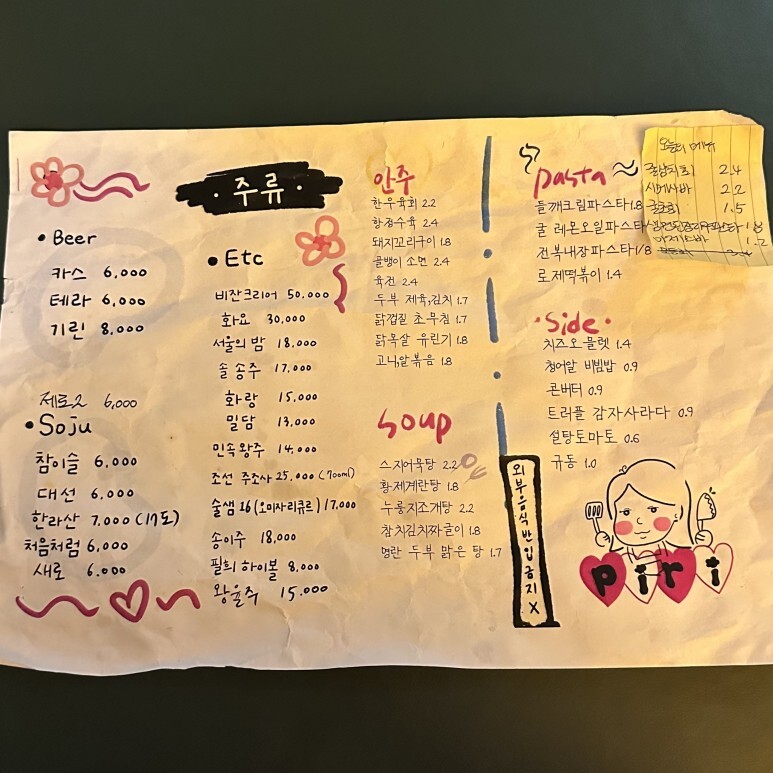 주류
Beer
카스 6,000
테라 6,000
기린 8,000
제로2 6,000
Soju
참이슬 6,000
대선 6,000
한라산 7,000 (17도)
처음처럼 6,000
새로 6,000
Etc
비잔크리어 50,000
화요 30,000
서울의 밤 18,000
솔송주 17,000
화랑 15,000
밀담 13,000
민속왕주 14,000
조선 주조사 25,000 (700ml)
술샘16 (오미자리큐르) 17,000
송이주 18,000
필희 하이볼 8,000
왕율주 15,000
안주
한우육회 2.2
항정수육 2.4
돼지꼬리구이 1.8
골뱅이 소면 2.4
육전 2.4
두부 제육,김치 1.7
닭껍질 초무침 1.7
닭목살 유린기 1.8
고니,알볶음 1.8
Soup
스지어묵탕 2.2
황제계란탕 1.8
누룽지조개탕 2.2
참치김치짜글이 1.8
명란 두부 맑은 탕 1.7
pasta
들깨크림파스타 1.8
굴 레몬오일파스타
전복내장파스타 1/8
로제떡볶이 1.4
Side
치즈오믈렛 1.4
청어알 비빔밥 0.9
콘버터 0.9
트러플 감자사라다 0.9
설탕토마토 0.6
규동 1.0
외부음식반입금지X
piri
오늘의 메뉴
2.4
시메사바 2.2
1.5